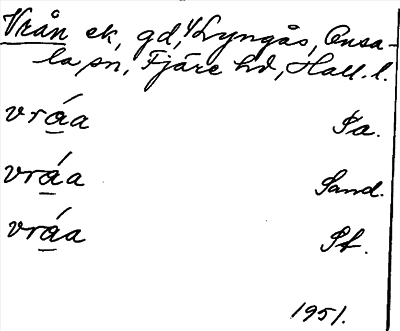 Vrån ek, gd, ⁴/Lyngås, Onsa-
la sn, Fjäre hd, Hall. l.
vráa Pa.
vráa Sand.
vráa Pf.
1951.